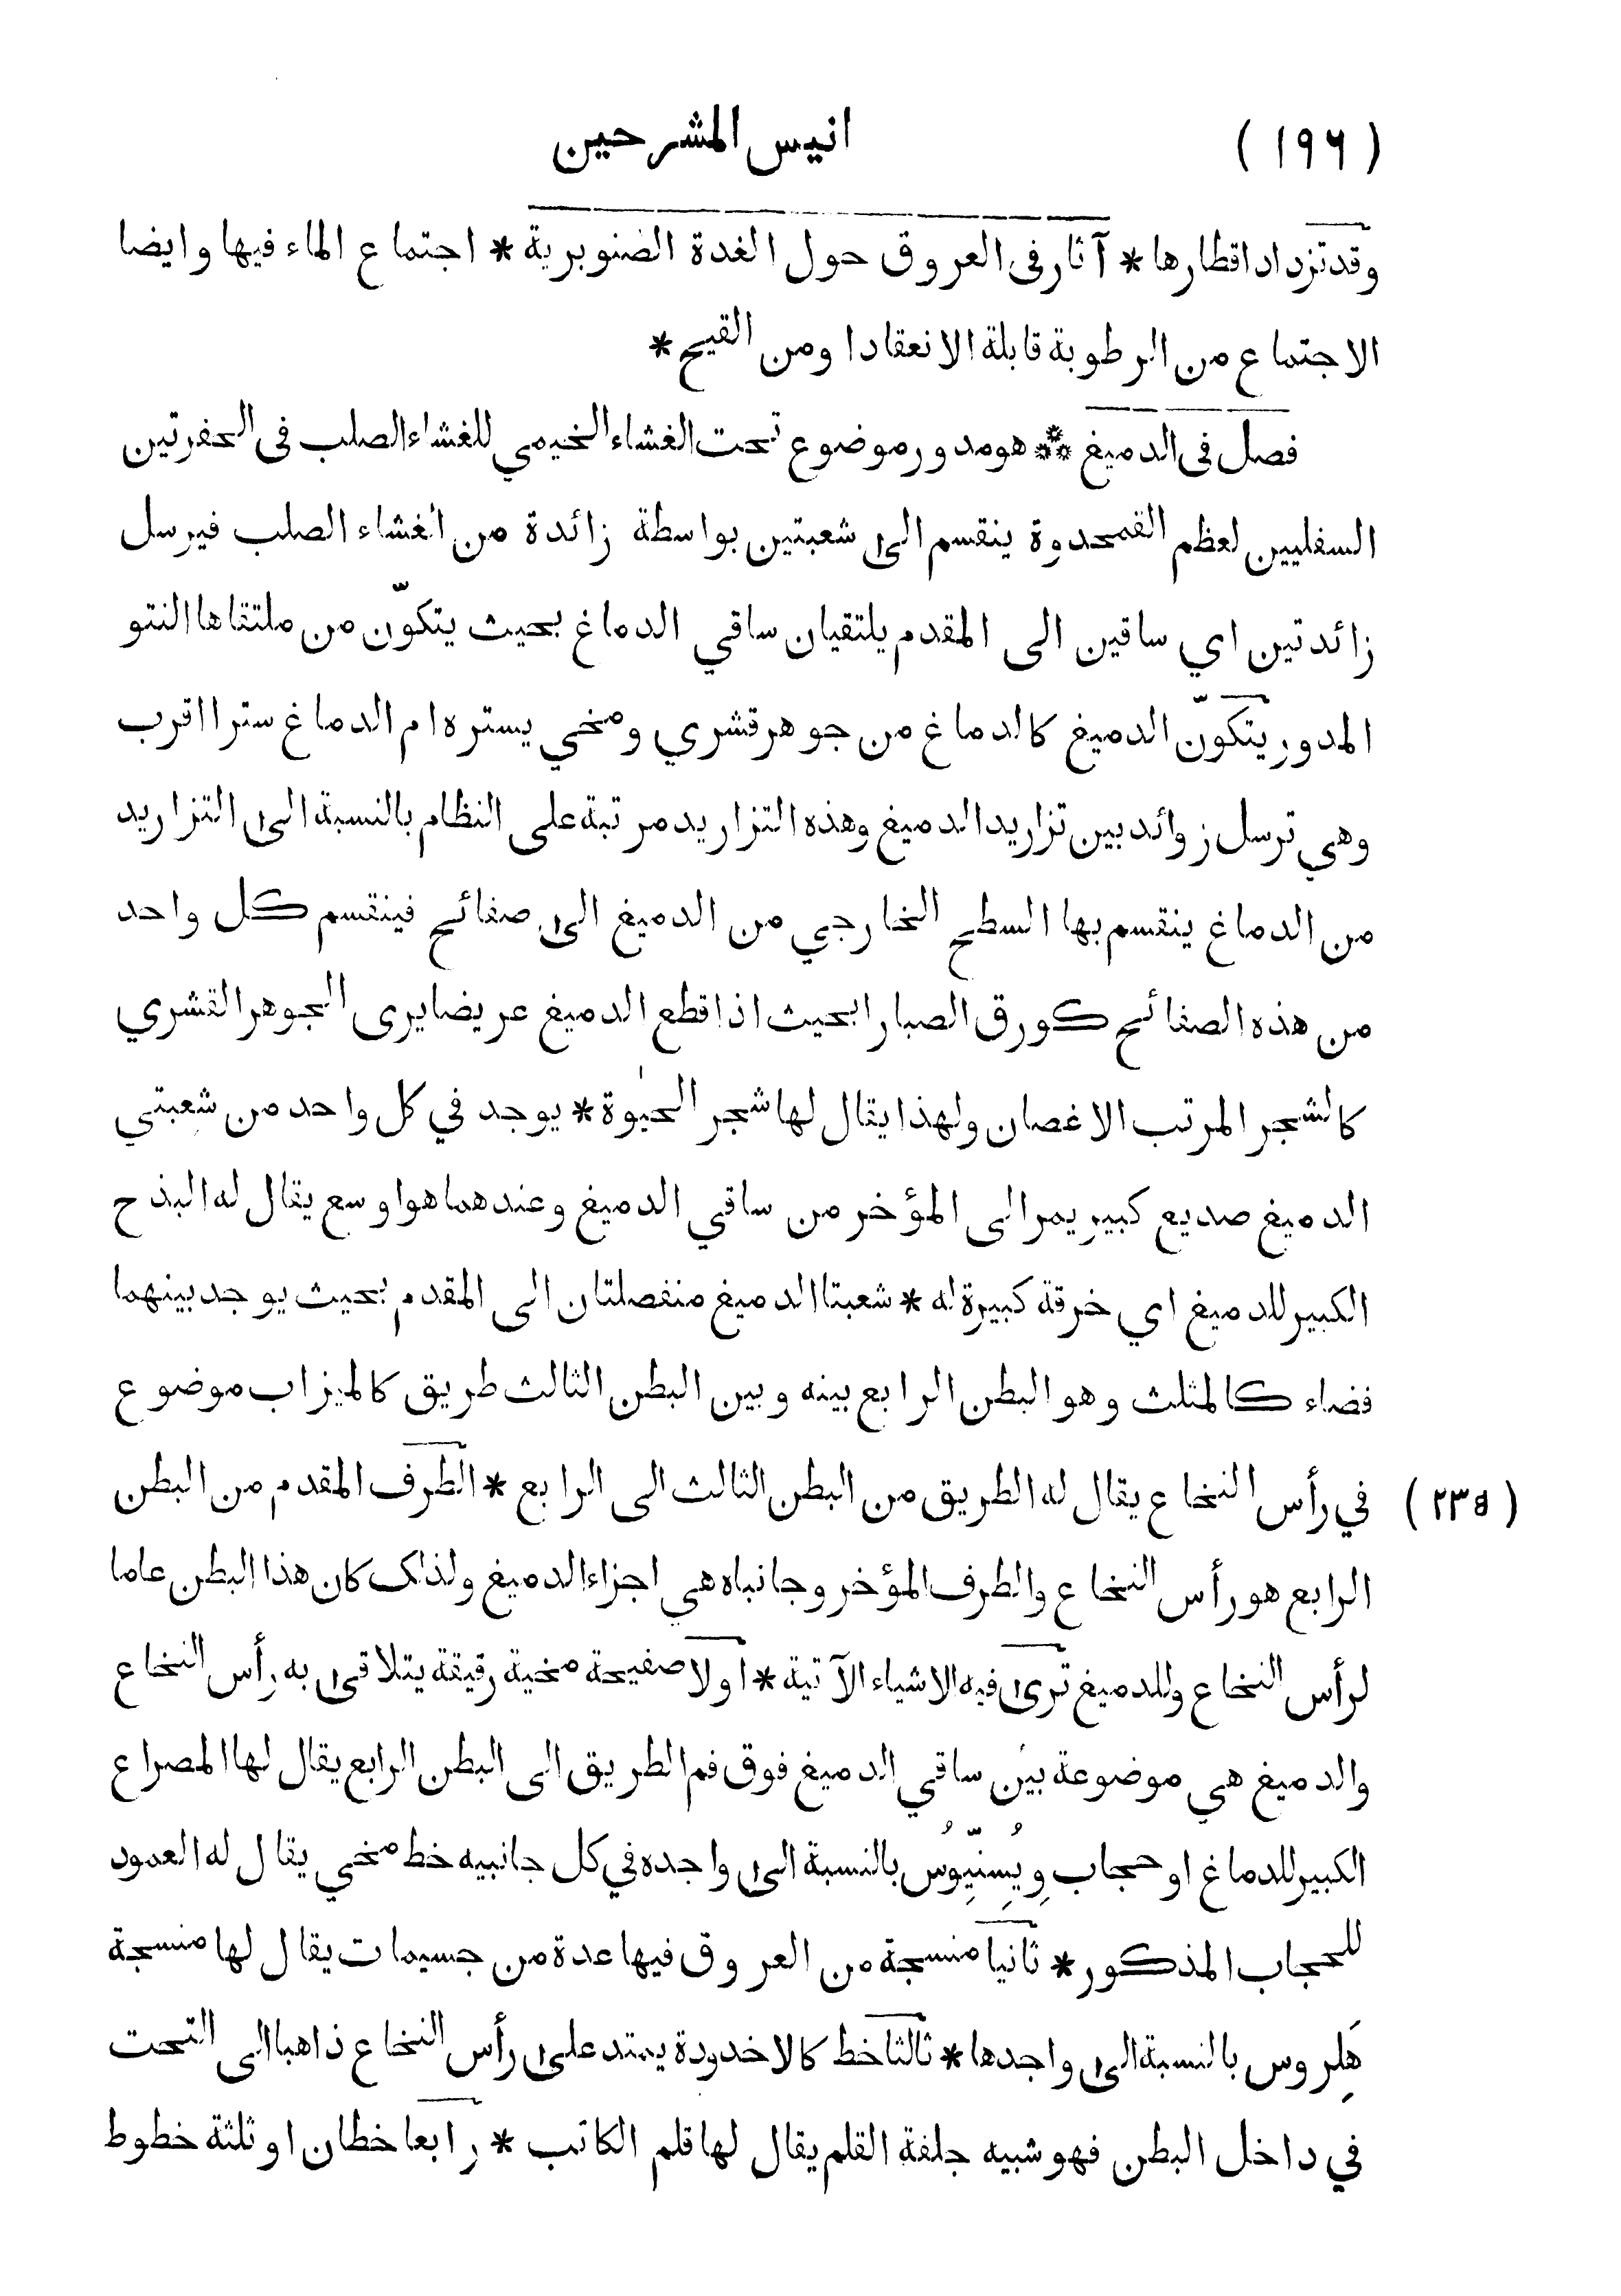 (۱۹۶) انيس المشرحين
وقد تزداد اقطارها * آثار فى العروق حول الغدة الصنوبرية * اجتماع الماء فيها وايضا
الاجتماع من الرطوبة قابلة الانعقاد ا ومن القيح *
فصل فى الدميغ ⁂ هو مدور موضوع تحت الغشاء الخيمي للغشاء الصلب فى الحفرتين
السفليين لعظم القمحدوة ينقسم الى شعبتين بواسطة زائدة من الغشاء الصلب فيرسل
زائدتين اي ساقين الى المقدم يلتقيان ساقي الدماغ بحيث يتكوّن من ملتقاها النتو
المدور يتكوّن الدميغ كالدماغ من جوهر قشري ومخي يستره ام الدماغ سترا اقرب
وهي ترسل زوائد بين تزاريد الدميغ وهذه التزاريد مرتبة على النظام بالنسبة الى التزاريد
من الدماغ ينقسم بها السطح الخارجي من الدميغ الى صفائح فينقسم كل واحد
من هذه الصفائح كورق الصبارا بحيث اذا قطع الدميغ عريضا يرى الجوهر القشري
كالشجر المرتب الاغصان ولهذا يقال لها شجر الحيٰوة * يوجد في كل واحد من شعبتي
الدميغ صديع كبير يمر الى المؤخر من ساقي الدميغ وعندهما هو اوسع يقال له البذح
الكبير للدميغ اي خرقة كبيرة له * شعبتا الدميغ منفصلتان الى المقدم بحيث يوجد بينهما
فضاء كالمثلث وهو البطن الرابع بينه وبين البطن الثالث طريق كالميزاب موضوع
(۲۳۵) في رأس النخاع يقال له الطريق من البطن الثالث الى الرابع * الطرف المقدم من البطن
الرابع هو رأس النخاع والطرف المؤخر وجانباه هي اجزاء الدميغ ولذلك كان هذا البطن عاما
لرأس النخاع وللدميغ ترى فيه الاشياء الآتية * اولا صفيحة مخية رقيقة يتلاقى به رأس النخاع
والدميغ هي موضوعة بين ساقي الدميغ فوق فم الطريق الى البطن الرابع يقال لها المصراع
الكبير للدماغ او حجاب وِيُسِنِّيُوس بالنسبة الى واجده في كل جانبيه خط مخي يقال له العمود
للحجاب المذكور * ثانيا منسجة من العروق فيها عدة من جسيمات يقال لها منسجة
هَلِروس بالنسبة الى واجدها * ثالثا خط كالاخدودة يمتد على رأس النخاع ذاهبا الى التحت
في داخل البطن فهو شبيه جلفة القلم يقال لها قلم الكاتب * رابعا خطان او ثلثة خطوط